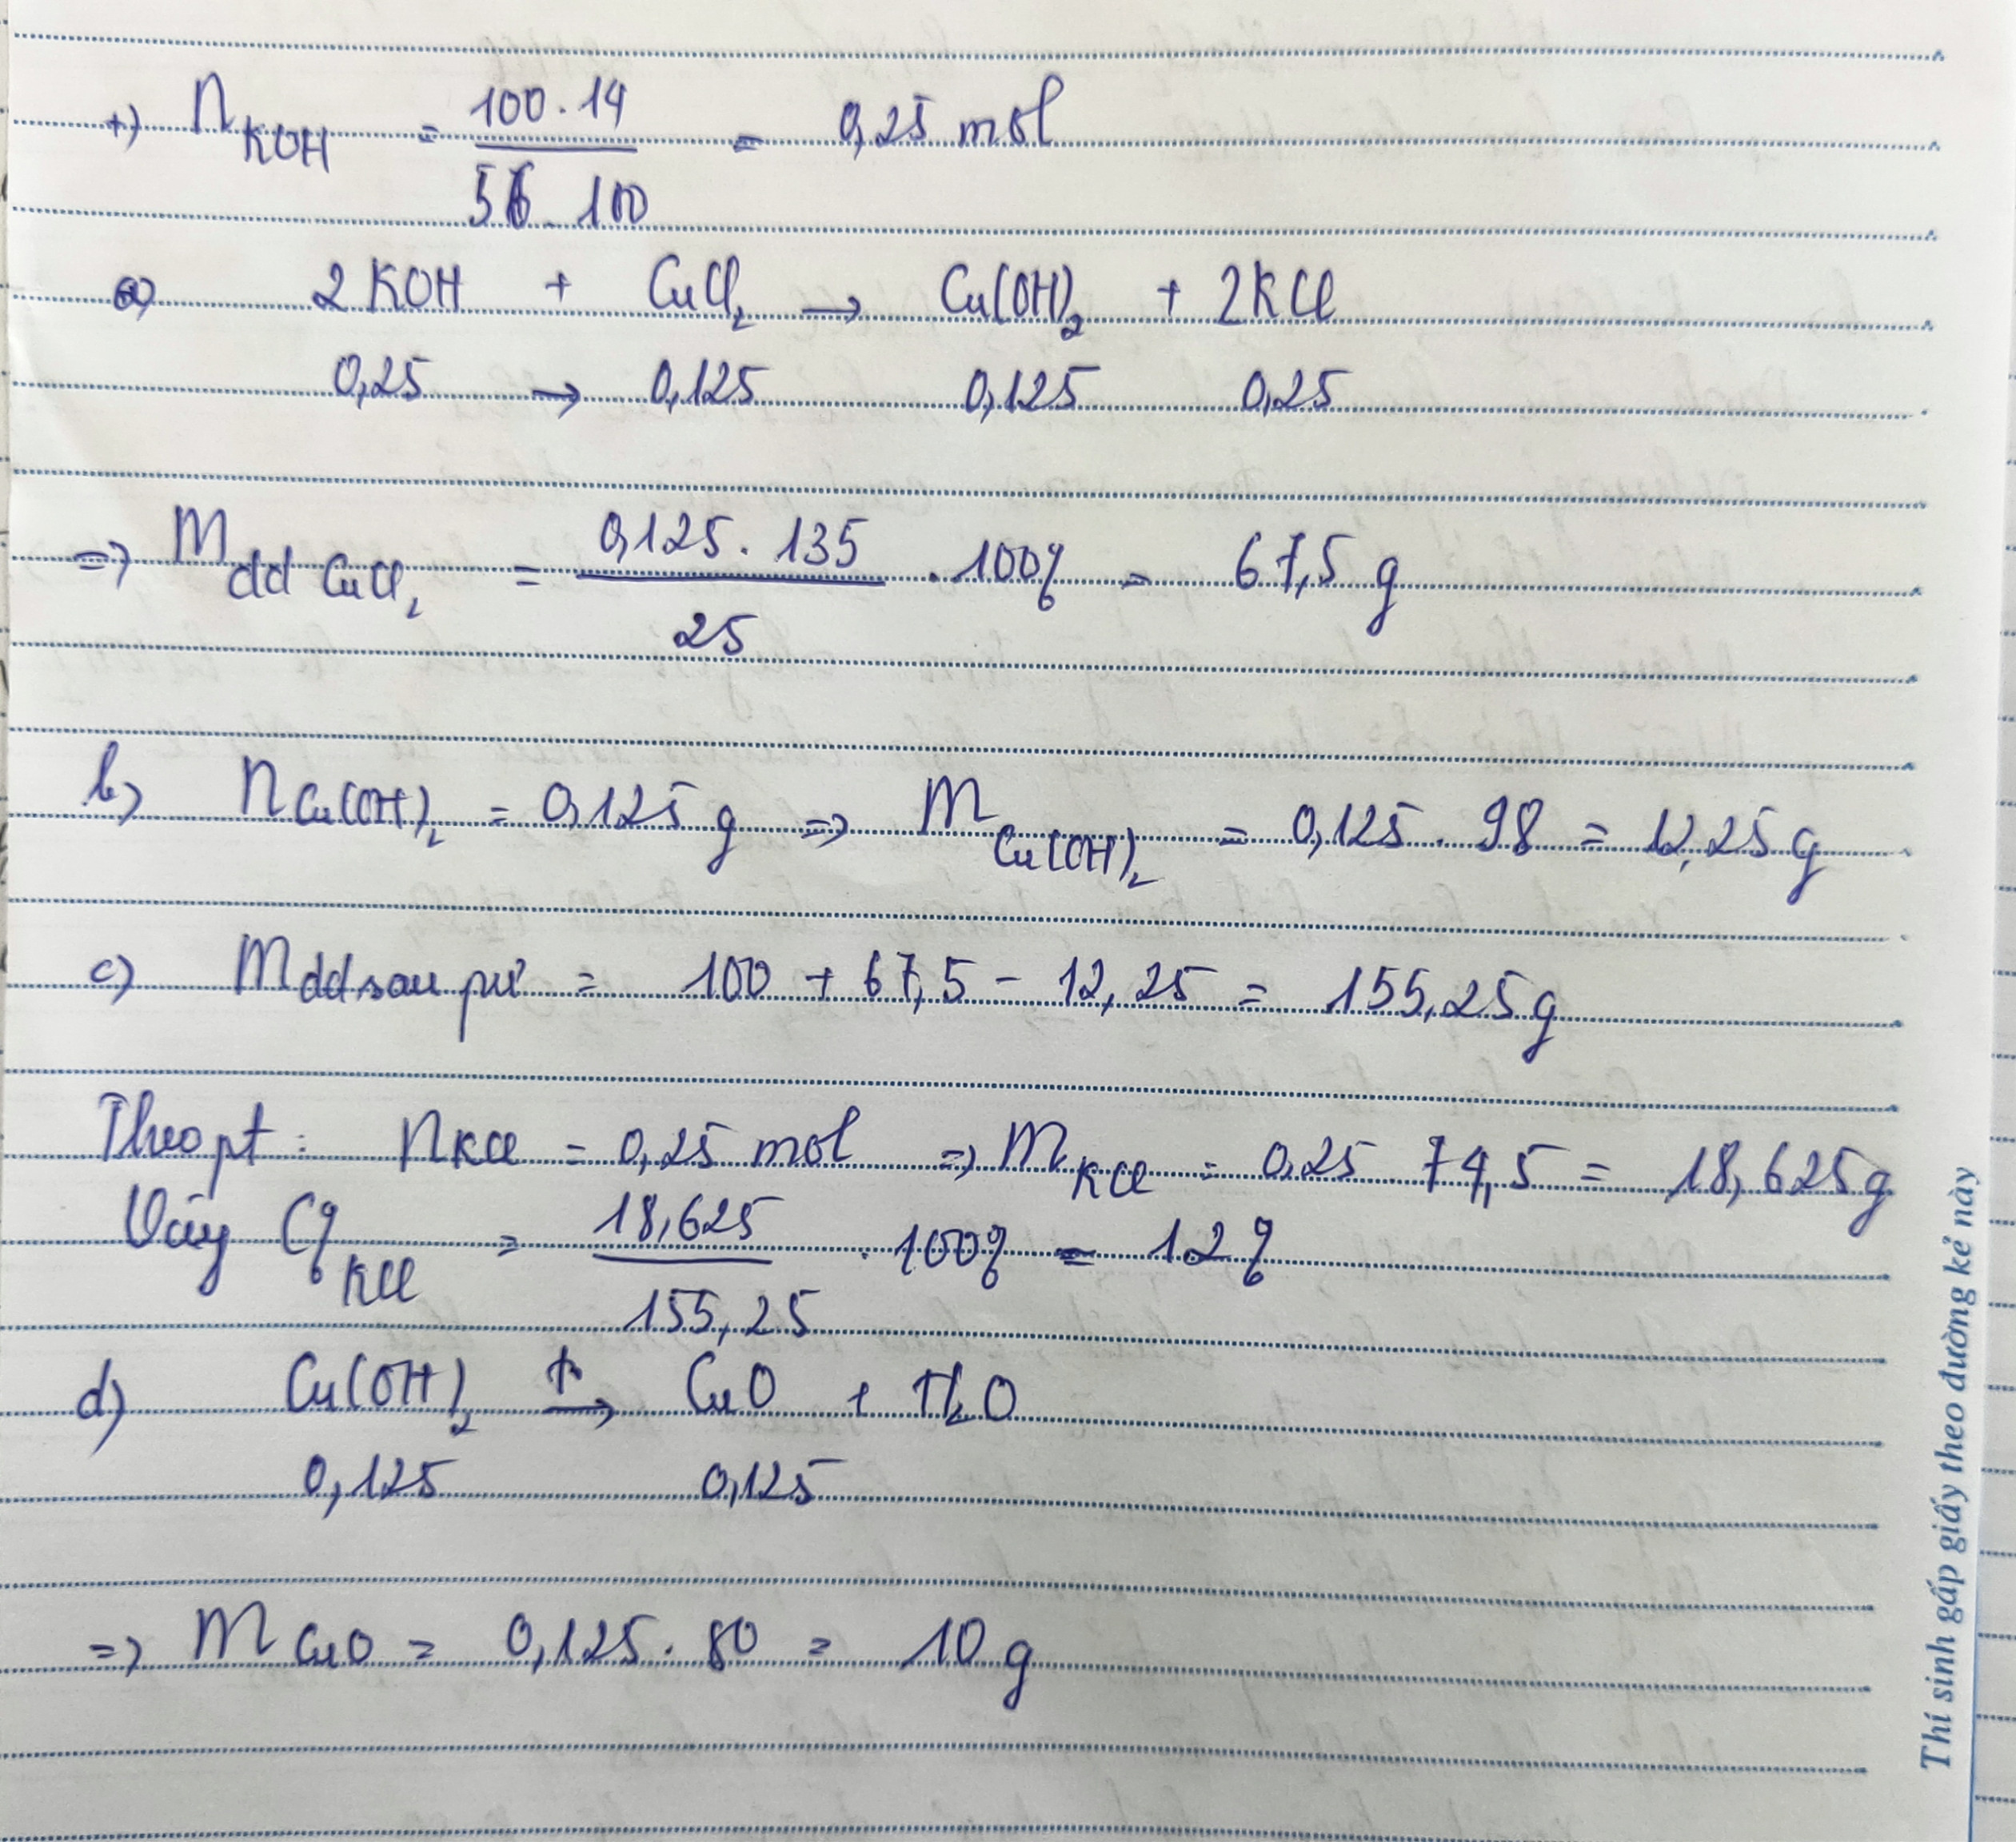 +) nKOH = 100.14 / 56.100 = 0,25 mol
a) 2KOH + CuCl2 → Cu(OH)2 + 2KCl
0,25 → 0,125 0,125 0,25
=> m dd CuCl2 = 0,125.135 / 25 . 100% = 67,5 g
b) nCu(OH)2 = 0,125 g => mCu(OH)2 = 0,125 . 98 = 12,25 g
c) m dd sau pư = 100 + 67,5 - 12,25 = 155,25 g
Theo pt: nKCl = 0,25 mol => mKCl = 0,25 74,5 = 18,625 g
Vậy C% KCl = 18,625 / 155,25 . 100% = 12 %
d) Cu(OH)2 t° → CuO + H2O
0,125 0,125
=> mCuO = 0,125 . 80 = 10 g
Thí sinh gấp giấy theo đường kẻ này